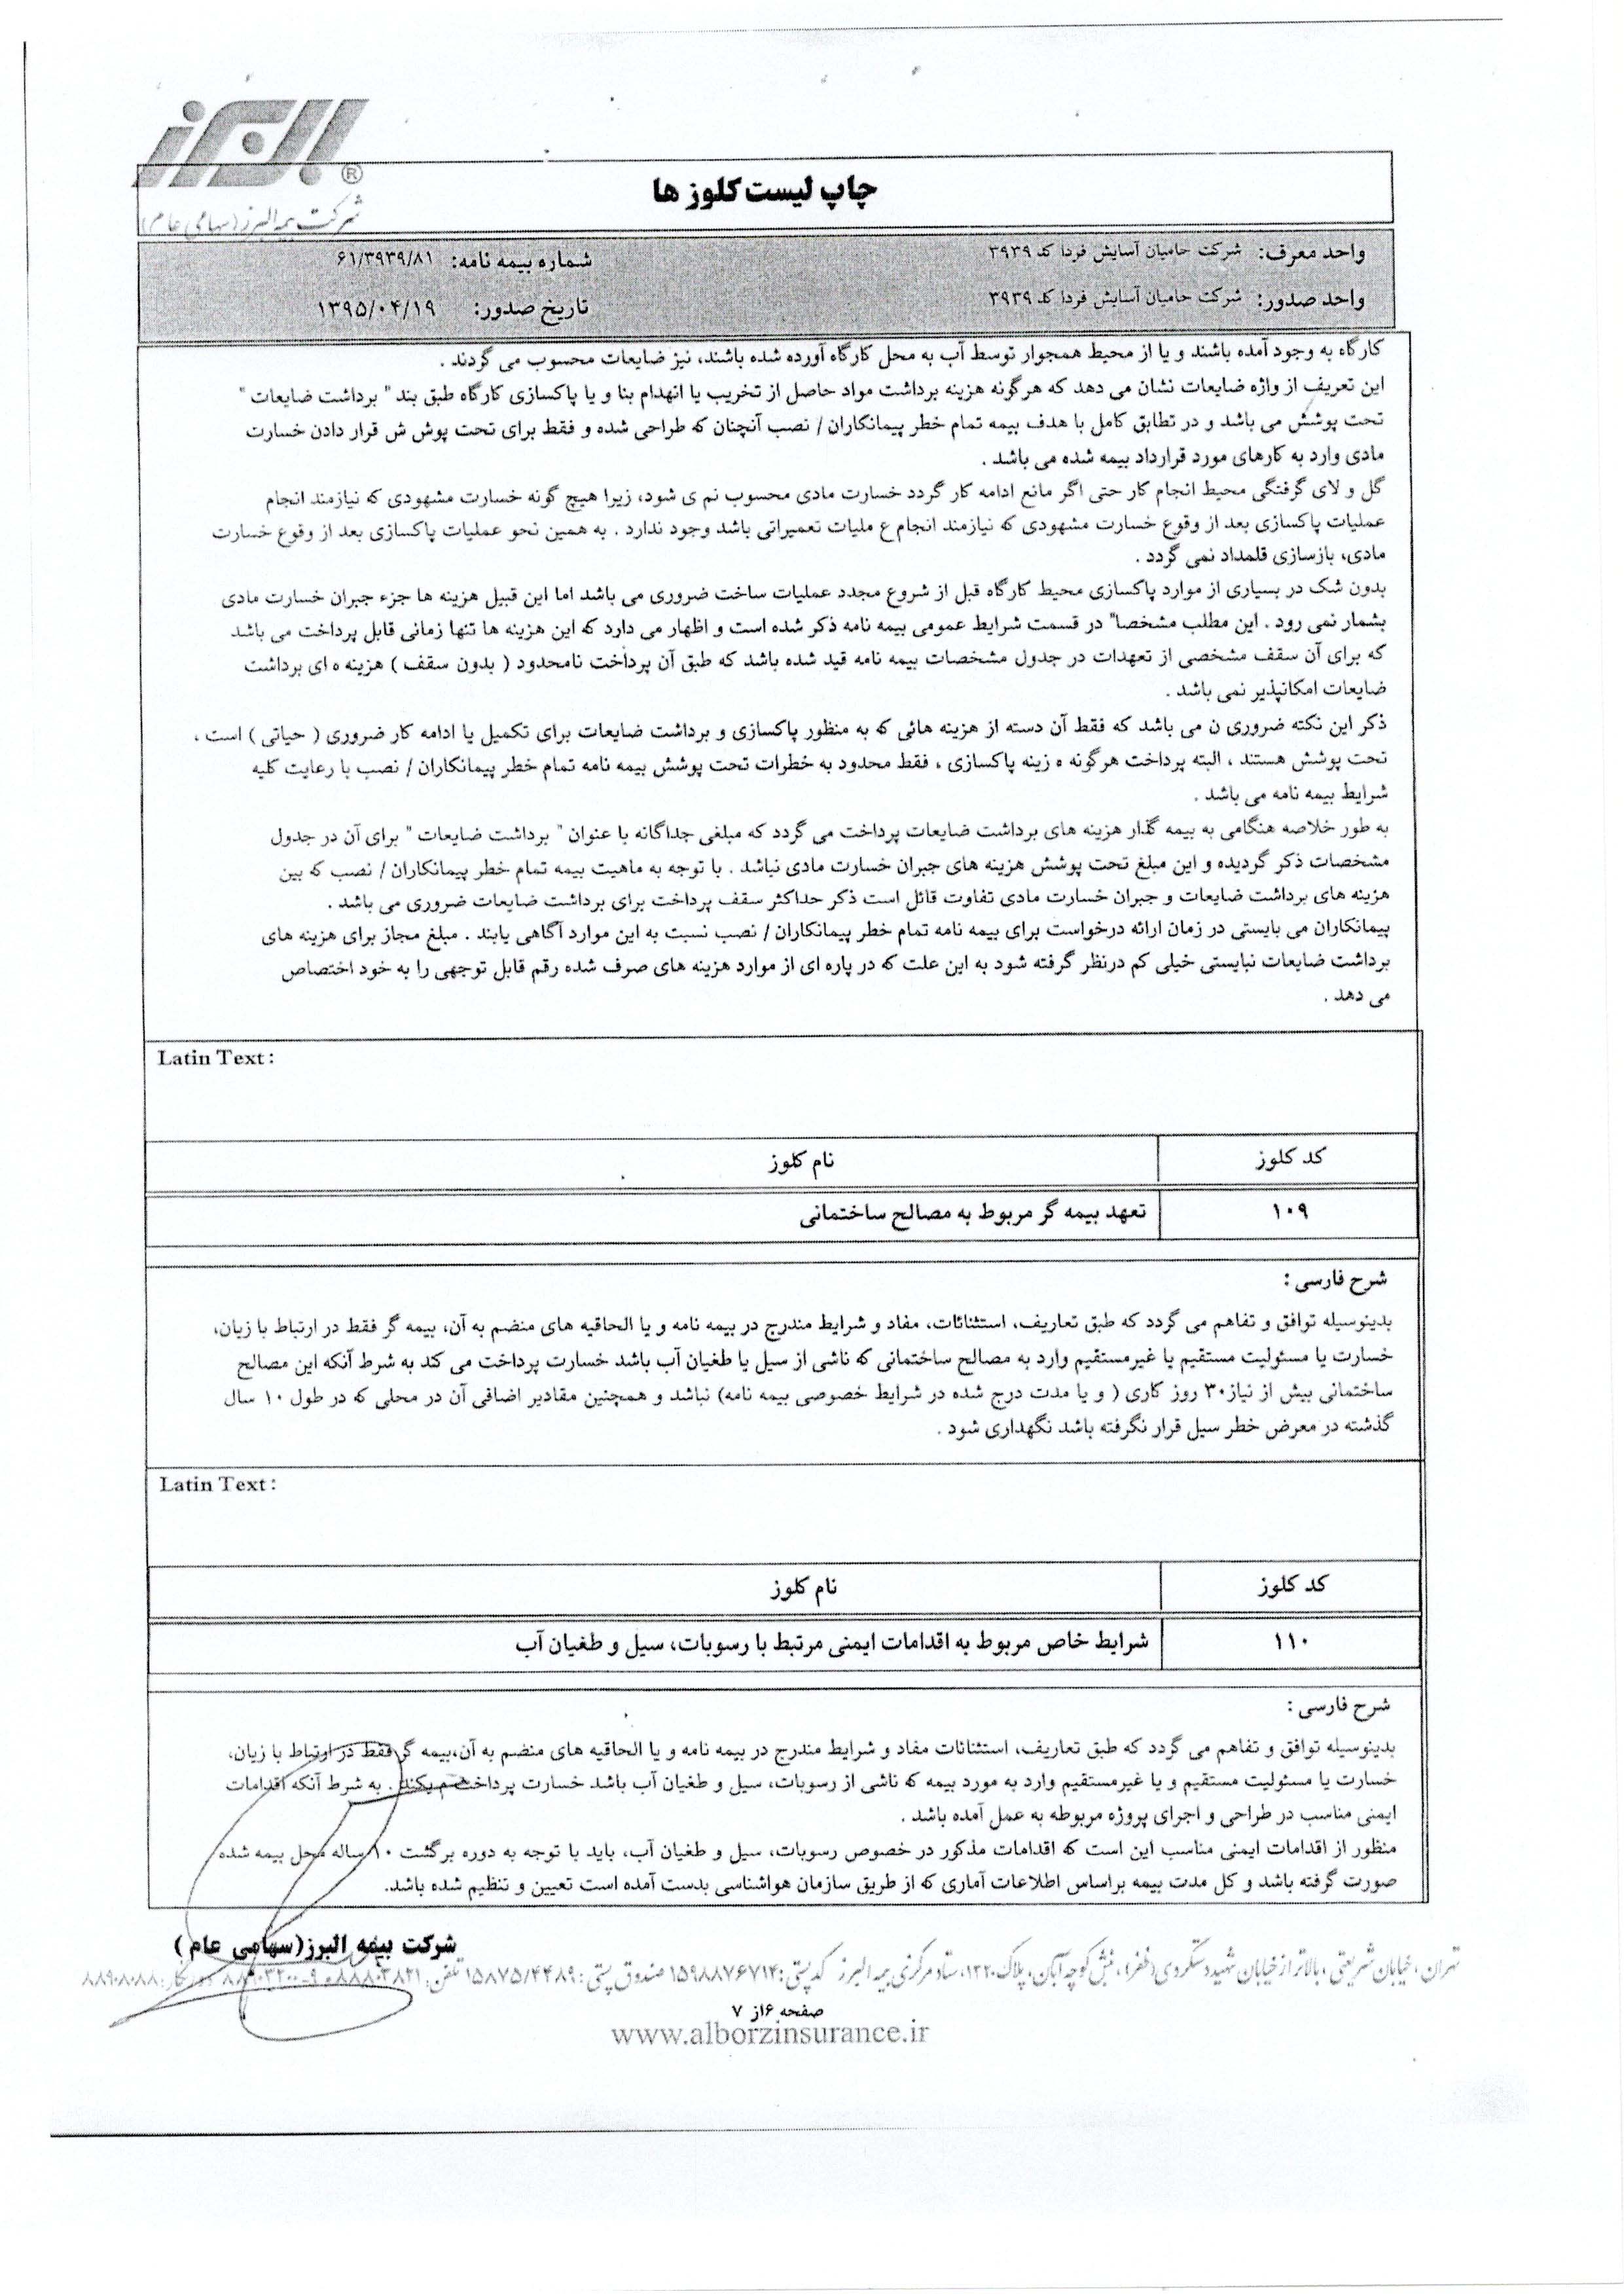 البرز
®
شرکت بیمه البرز (سهامی عام)
چاپ لیست کلوز ها
واحد معرف: شرکت حامیان آسایش فردا کد ۳۹۳۹
شماره بیمه نامه: ۶۱/۳۹۳۹/۸۱
واحد صدور: شرکت حامیان آسایش فردا کد ۳۹۳۹
تاریخ صدور: ۱۳۹۵/۰۴/۱۹
کارگاه به وجود آمده باشند و یا از محیط همجوار توسط آب به محل کارگاه آورده شده باشند، نیز ضایعات محسوب می گردند .
این تعریف از واژه ضایعات نشان می دهد که هرگونه هزینه برداشت مواد حاصل از تخریب یا انهدام بنا و یا پاکسازی کارگاه طبق بند " برداشت ضایعات "
تحت پوشش می باشد و در تطابق کامل با هدف بیمه تمام خطر پیمانکاران / نصب آنچنان که طراحی شده و فقط برای تحت پوش ش قرار دادن خسارت
مادی وارد به کارهای مورد قرارداد بیمه شده می باشد .
گل و لای گرفتگی محیط انجام کار حتی اگر مانع ادامه کار گردد خسارت مادی محسوب نم ی شود، زیرا هیچ گونه خسارت مشهودی که نیازمند انجام
عملیات پاکسازی بعد از وقوع خسارت مشهودی که نیازمند انجام ع ملیات تعمیراتی باشد وجود ندارد . به همین نحو عملیات پاکسازی بعد از وقوع خسارت
مادی، بازسازی قلمداد نمی گردد .
بدون شک در بسیاری از موارد پاکسازی محیط کارگاه قبل از شروع مجدد عملیات ساخت ضروری می باشد اما این قبیل هزینه ها جزء جبران خسارت مادی
بشمار نمی رود . این مطلب مشخصا" در قسمت شرایط عمومی بیمه نامه ذکر شده است و اظهار می دارد که این هزینه ها تنها زمانی قابل پرداخت می باشد
که برای آن سقف مشخصی از تعهدات در جدول مشخصات بیمه نامه قید شده باشد که طبق آن پرداخت نامحدود ( بدون سقف ) هزینه ه ای برداشت
ضایعات امکانپذیر نمی باشد .
ذکر این نکته ضروری ن می باشد که فقط آن دسته از هزینه هائی که به منظور پاکسازی و برداشت ضایعات برای تکمیل یا ادامه کار ضروری ( حیاتی ) است ،
تحت پوشش هستند ، البته پرداخت هرگونه ه زینه پاکسازی ، فقط محدود به خطرات تحت پوشش بیمه نامه تمام خطر پیمانکاران / نصب با رعایت کلیه
شرایط بیمه نامه می باشد .
به طور خلاصه هنگامی به بیمه گذار هزینه های برداشت ضایعات پرداخت می گردد که مبلغی جداگانه با عنوان " برداشت ضایعات " برای آن در جدول
مشخصات ذکر گردیده و این مبلغ تحت پوشش هزینه های جبران خسارت مادی نباشد . با توجه به ماهیت بیمه تمام خطر پیمانکاران / نصب که بین
هزینه های برداشت ضایعات و جبران خسارت مادی تفاوت قائل است ذکر حداکثر سقف پرداخت برای برداشت ضایعات ضروری می باشد .
پیمانکاران می بایستی در زمان ارائه درخواست برای بیمه نامه تمام خطر پیمانکاران / نصب نسبت به این موارد آگاهی یابند . مبلغ مجاز برای هزینه های
برداشت ضایعات نبایستی خیلی کم درنظر گرفته شود به این علت که در پاره ای از موارد هزینه های صرف شده رقم قابل توجهی را به خود اختصاص
می دهد .
Latin Text :
کد کلوز
نام کلوز
۱۰۹
تعهد بیمه گر مربوط به مصالح ساختمانی
شرح فارسی :
بدینوسیله توافق و تفاهم می گردد که طبق تعاریف، استثنائات، مفاد و شرایط مندرج در بیمه نامه و یا الحاقیه های منضم به آن، بیمه گر فقط در ارتباط با زیان،
خسارت یا مسئولیت مستقیم یا غیرمستقیم وارد به مصالح ساختمانی که ناشی از سیل یا طغیان آب باشد خسارت پرداخت می کند به شرط آنکه این مصالح
ساختمانی بیش از نیاز۳۰ روز کاری ( و یا مدت درج شده در شرایط خصوصی بیمه نامه) نباشد و همچنین مقادیر اضافی آن در محلی که در طول ۱۰ سال
گذشته در معرض خطر سیل قرار نگرفته باشد نگهداری شود .
Latin Text :
کد کلوز
نام کلوز
۱۱۰
شرایط خاص مربوط به اقدامات ایمنی مرتبط با رسوبات، سیل و طغیان آب
شرح فارسی :
بدینوسیله توافق و تفاهم می گردد که طبق تعاریف، استثنائات مفاد و شرایط مندرج در بیمه نامه و یا الحاقیه های منضم به آن،بیمه گر فقط در ارتباط با زیان،
خسارت یا مسئولیت مستقیم و یا غیرمستقیم وارد به مورد بیمه که ناشی از رسوبات، سیل و طغیان آب باشد خسارت پرداخت م یکند . به شرط آنکه اقدامات
ایمنی مناسب در طراحی و اجرای پروژه مربوطه به عمل آمده باشد .
منظور از اقدامات ایمنی مناسب این است که اقدامات مذکور در خصوص رسوبات، سیل و طغیان آب، باید با توجه به دوره برگشت ۱۰ ساله محل بیمه شده
صورت گرفته باشد و کل مدت بیمه براساس اطلاعات آماری که از طریق سازمان هواشناسی بدست آمده است تعیین و تنظیم شده باشد.
شرکت بیمه البرز(سهامی عام )
تهران، خیابان شریعتی، بالاتر از خیابان شهید دستگردی (ظفر)، نبش کوچه آبان، پلاک ۱۲۲۰، ستاد مرکزی بیمه البرز کدپستی: ۱۵۹۸۸۷۶۷۱۴ صندوق پستی: ۱۵۸۷۵/۴۴۸۹ تلفن: ۸۸۸۰۳۸۲۱
صفحه ۶از ۷
www.alborzinsurance.ir